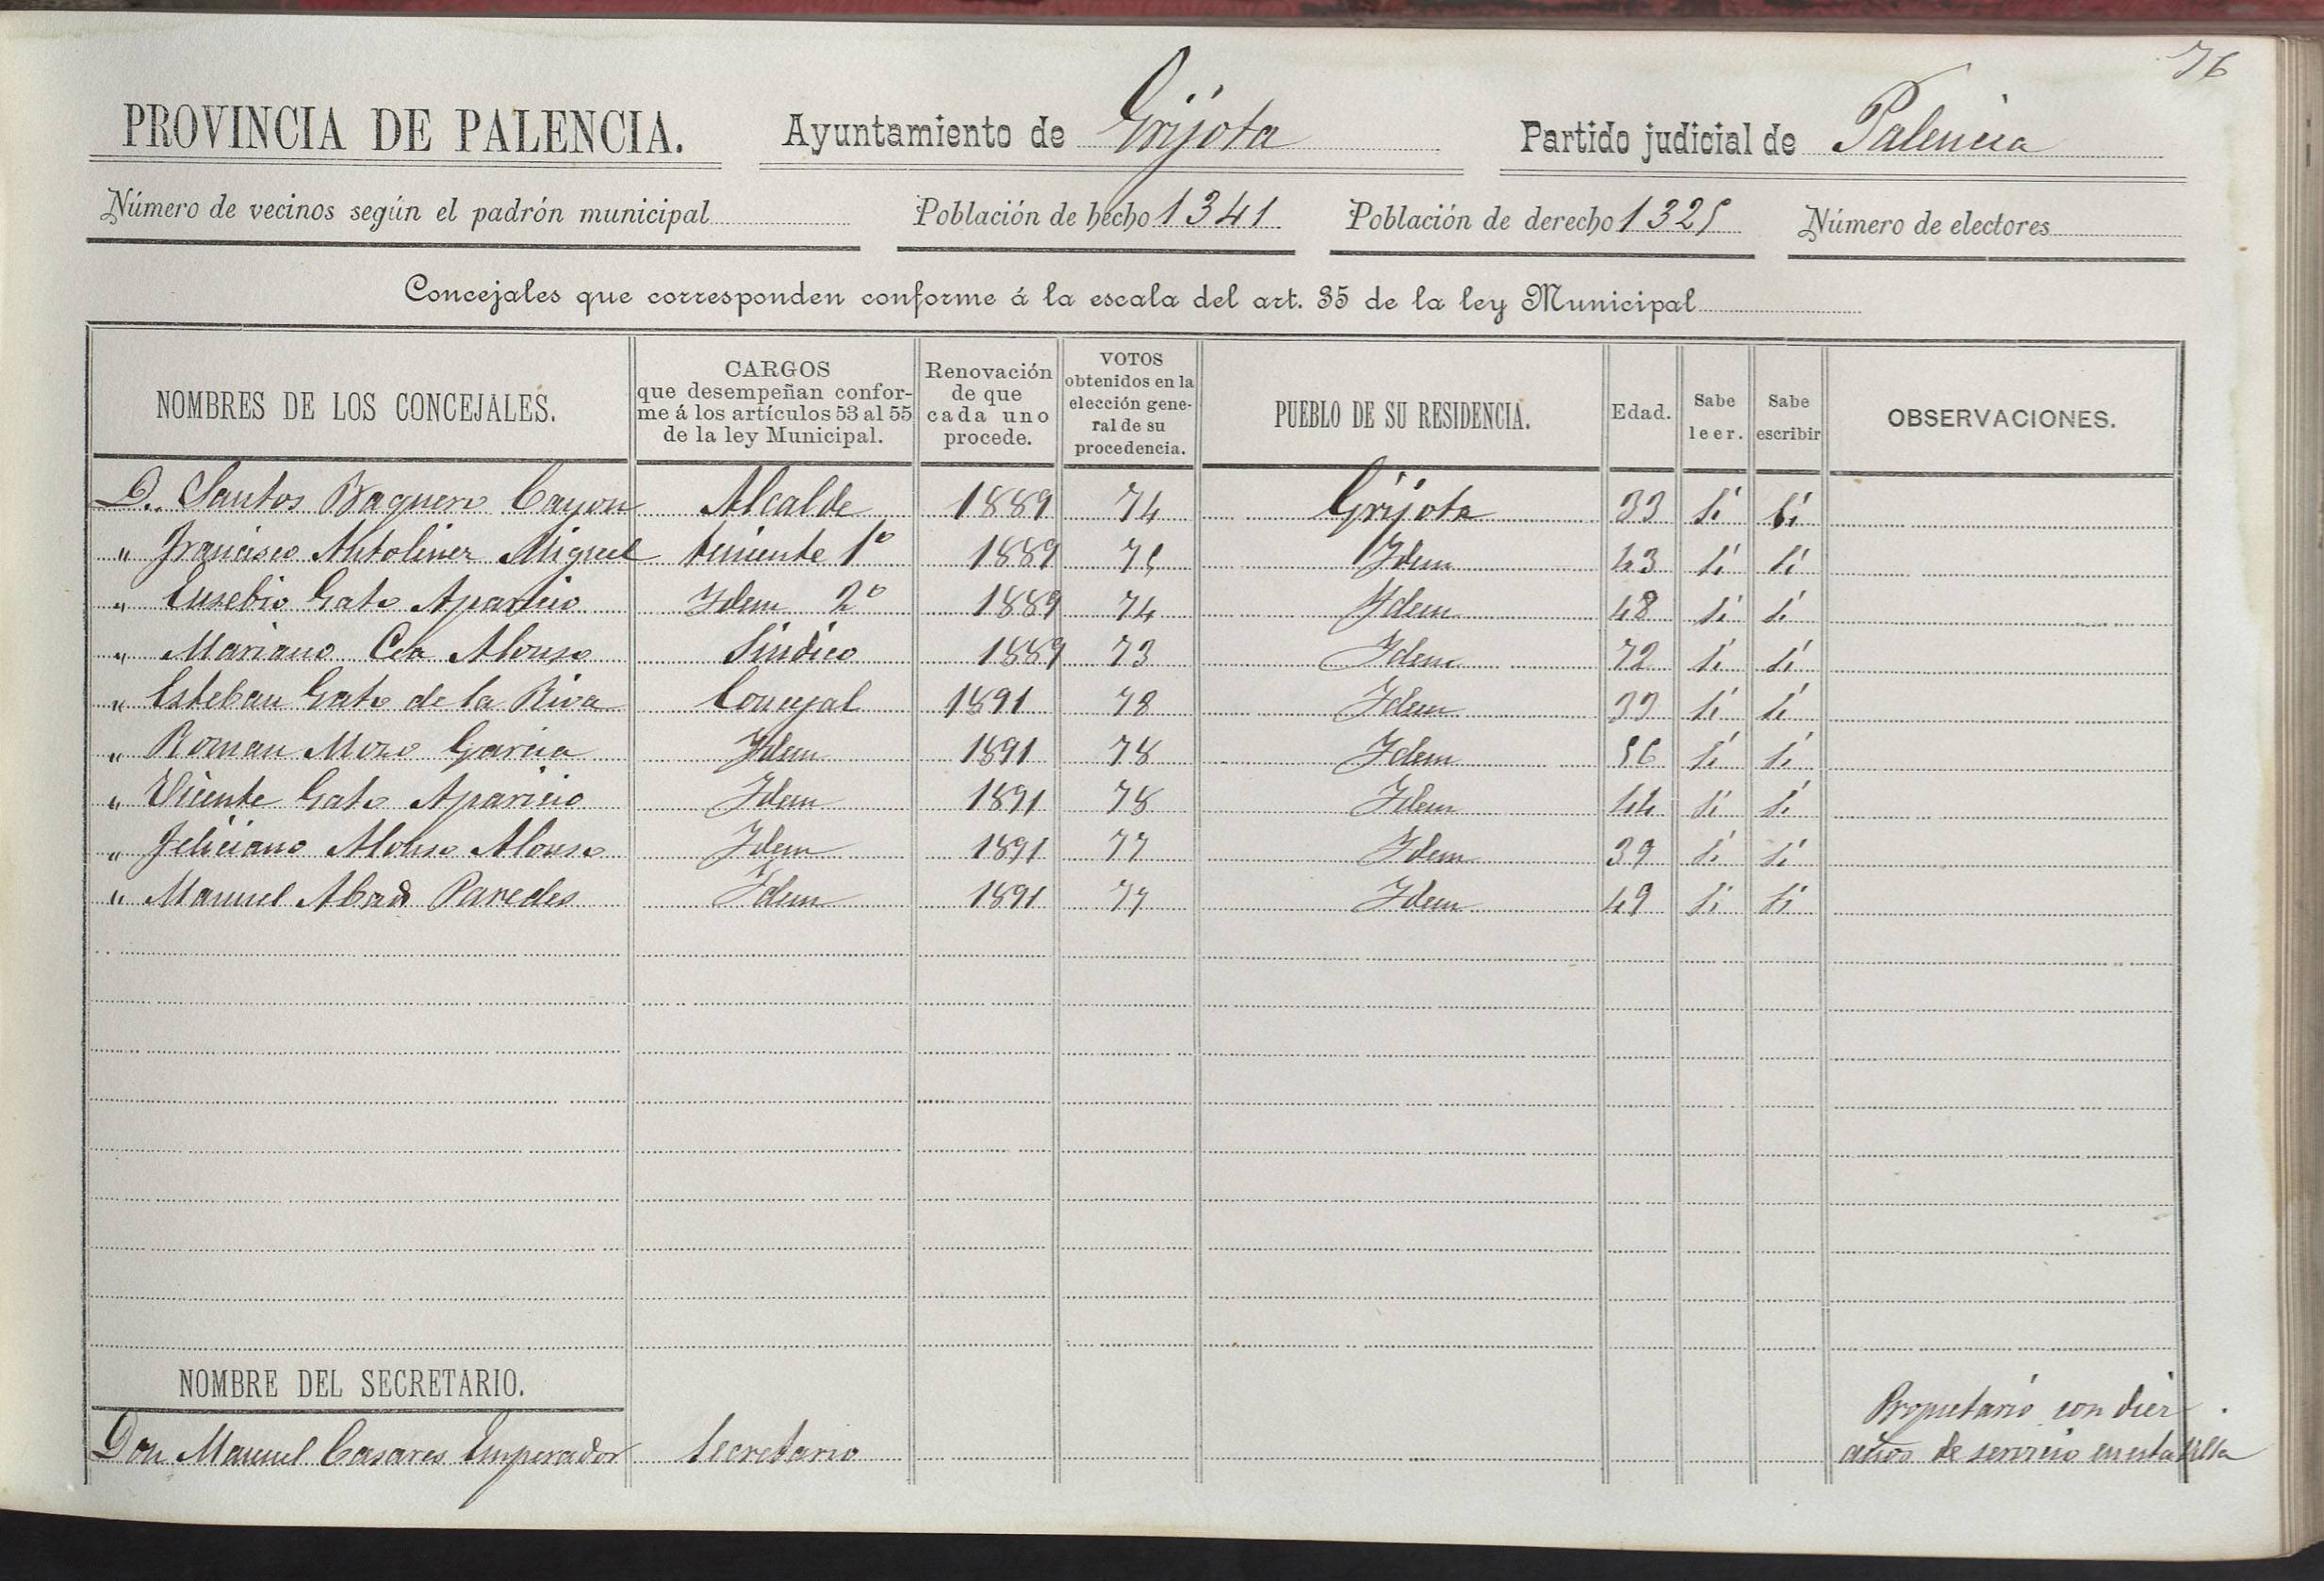 76
PROVINCIA DE PALENCIA. Ayuntamiento de Grijota Partido judicial de Palencia
Número de vecinos según el padrón municipal Población de hecho 1341 Población de derecho 1325 Número de electores
Concejales que corresponden conforme á la escala del art. 35 de la ley Municipal
NOMBRES DE LOS CONCEJALES. CARGOS que desempeñan conforme á los artículos 53 al 55 de la ley Municipal. Renovación de que cada uno procede. VOTOS obtenidos en la elección general de su procedencia. PUEBLO DE SU RESIDENCIA. Edad. Sabe leer. Sabe escribir OBSERVACIONES.
D. Santos Vaquero Cayon Alcalde 1889 74 Grijota 33 Si Si
" Francisco Antolinez Miguel teniente 1º 1889 75 Idem 43 Si Si
" Eusebio Gato Aparicio Idem 2º 1889 74 Idem 48 Si Si
" Mariano Cea Alonso Sindico 1889 73 Idem 72 Si Si
" Esteban Gato de la Riva Concejal 1891 78 Idem 33 Si Si
" Roman Mozo Garcia Idem 1891 78 Idem 56 Si Si
" Vicente Gato Aparicio Idem 1891 78 Idem 44 Si Si
" Feliciano Alonso Alonso Idem 1891 77 Idem 39 Si Si
" Manuel Abad Paredes Idem 1891 77 Idem 49 Si Si
NOMBRE DEL SECRETARIO.
Don Manuel Casares Emperador Secretario Propietario con diez
años de servicio en esta villa